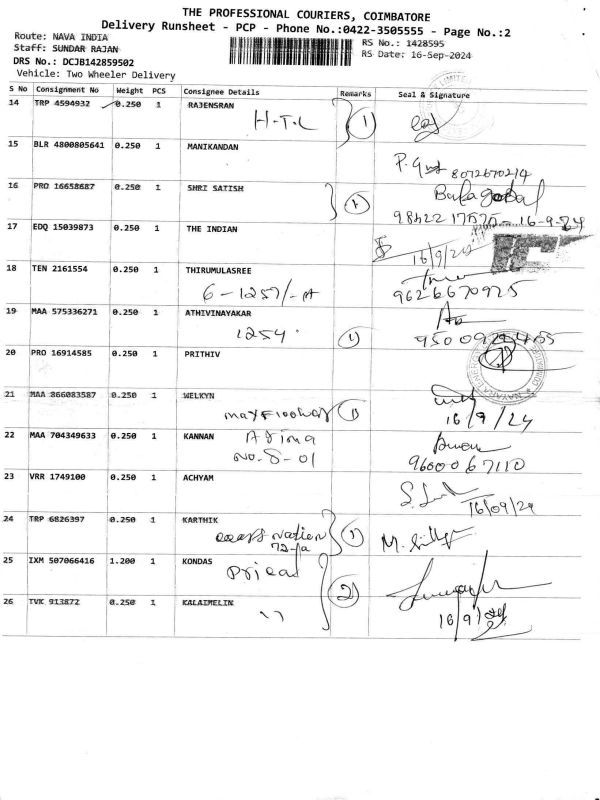 THE PROFESSIONAL COURIERS, COIMBATORE
Delivery Runsheet - PCP - Phone No.:0422-3505555 - Page No.:2
Route: NAVA INDIA
RS No.: 1428595
Staff: SUNDAR RAJAN
RS Date: 16-Sep-2024
DRS No.: DCJB142859502
Vehicle: Two Wheeler Delivery
S No Consignment No Weight PCS Consignee Details Remarks Seal & Signature
14 TRP 4594932 0.250 1 RAJENSRAN
H.T.L 1
15 BLR 4800805641 0.250 1 MANIKANDAN
8072670214
16 PRO 16658687 0.250 1 SHRI SATISH
Balagobal
98422 17575 - 16-9-24
17 EDQ 15039873 0.250 1 THE INDIAN
16/9/24
18 TEN 2161554 0.250 1 THIRUMULASREE
6-1257/-A 9626670925
19 MAA 575336271 0.250 1 ATHIVINAYAKAR
1254 1
20 PRO 16914585 0.250 1 PRITHIV
21 MAA 866083587 0.250 1 WELKYN
16/9/24
22 MAA 704349633 0.250 1 KANNAN
No. 8-01 9600067110
23 VRR 1749100 0.250 1 ACHYAM
16/09/24
24 TRP 6826397 0.250 1 KARTHIK
1
25 IXM 507066416 1.200 1 KONDAS
2
26 TVK 913872 0.250 1 KALAIMELIN
16/9/24